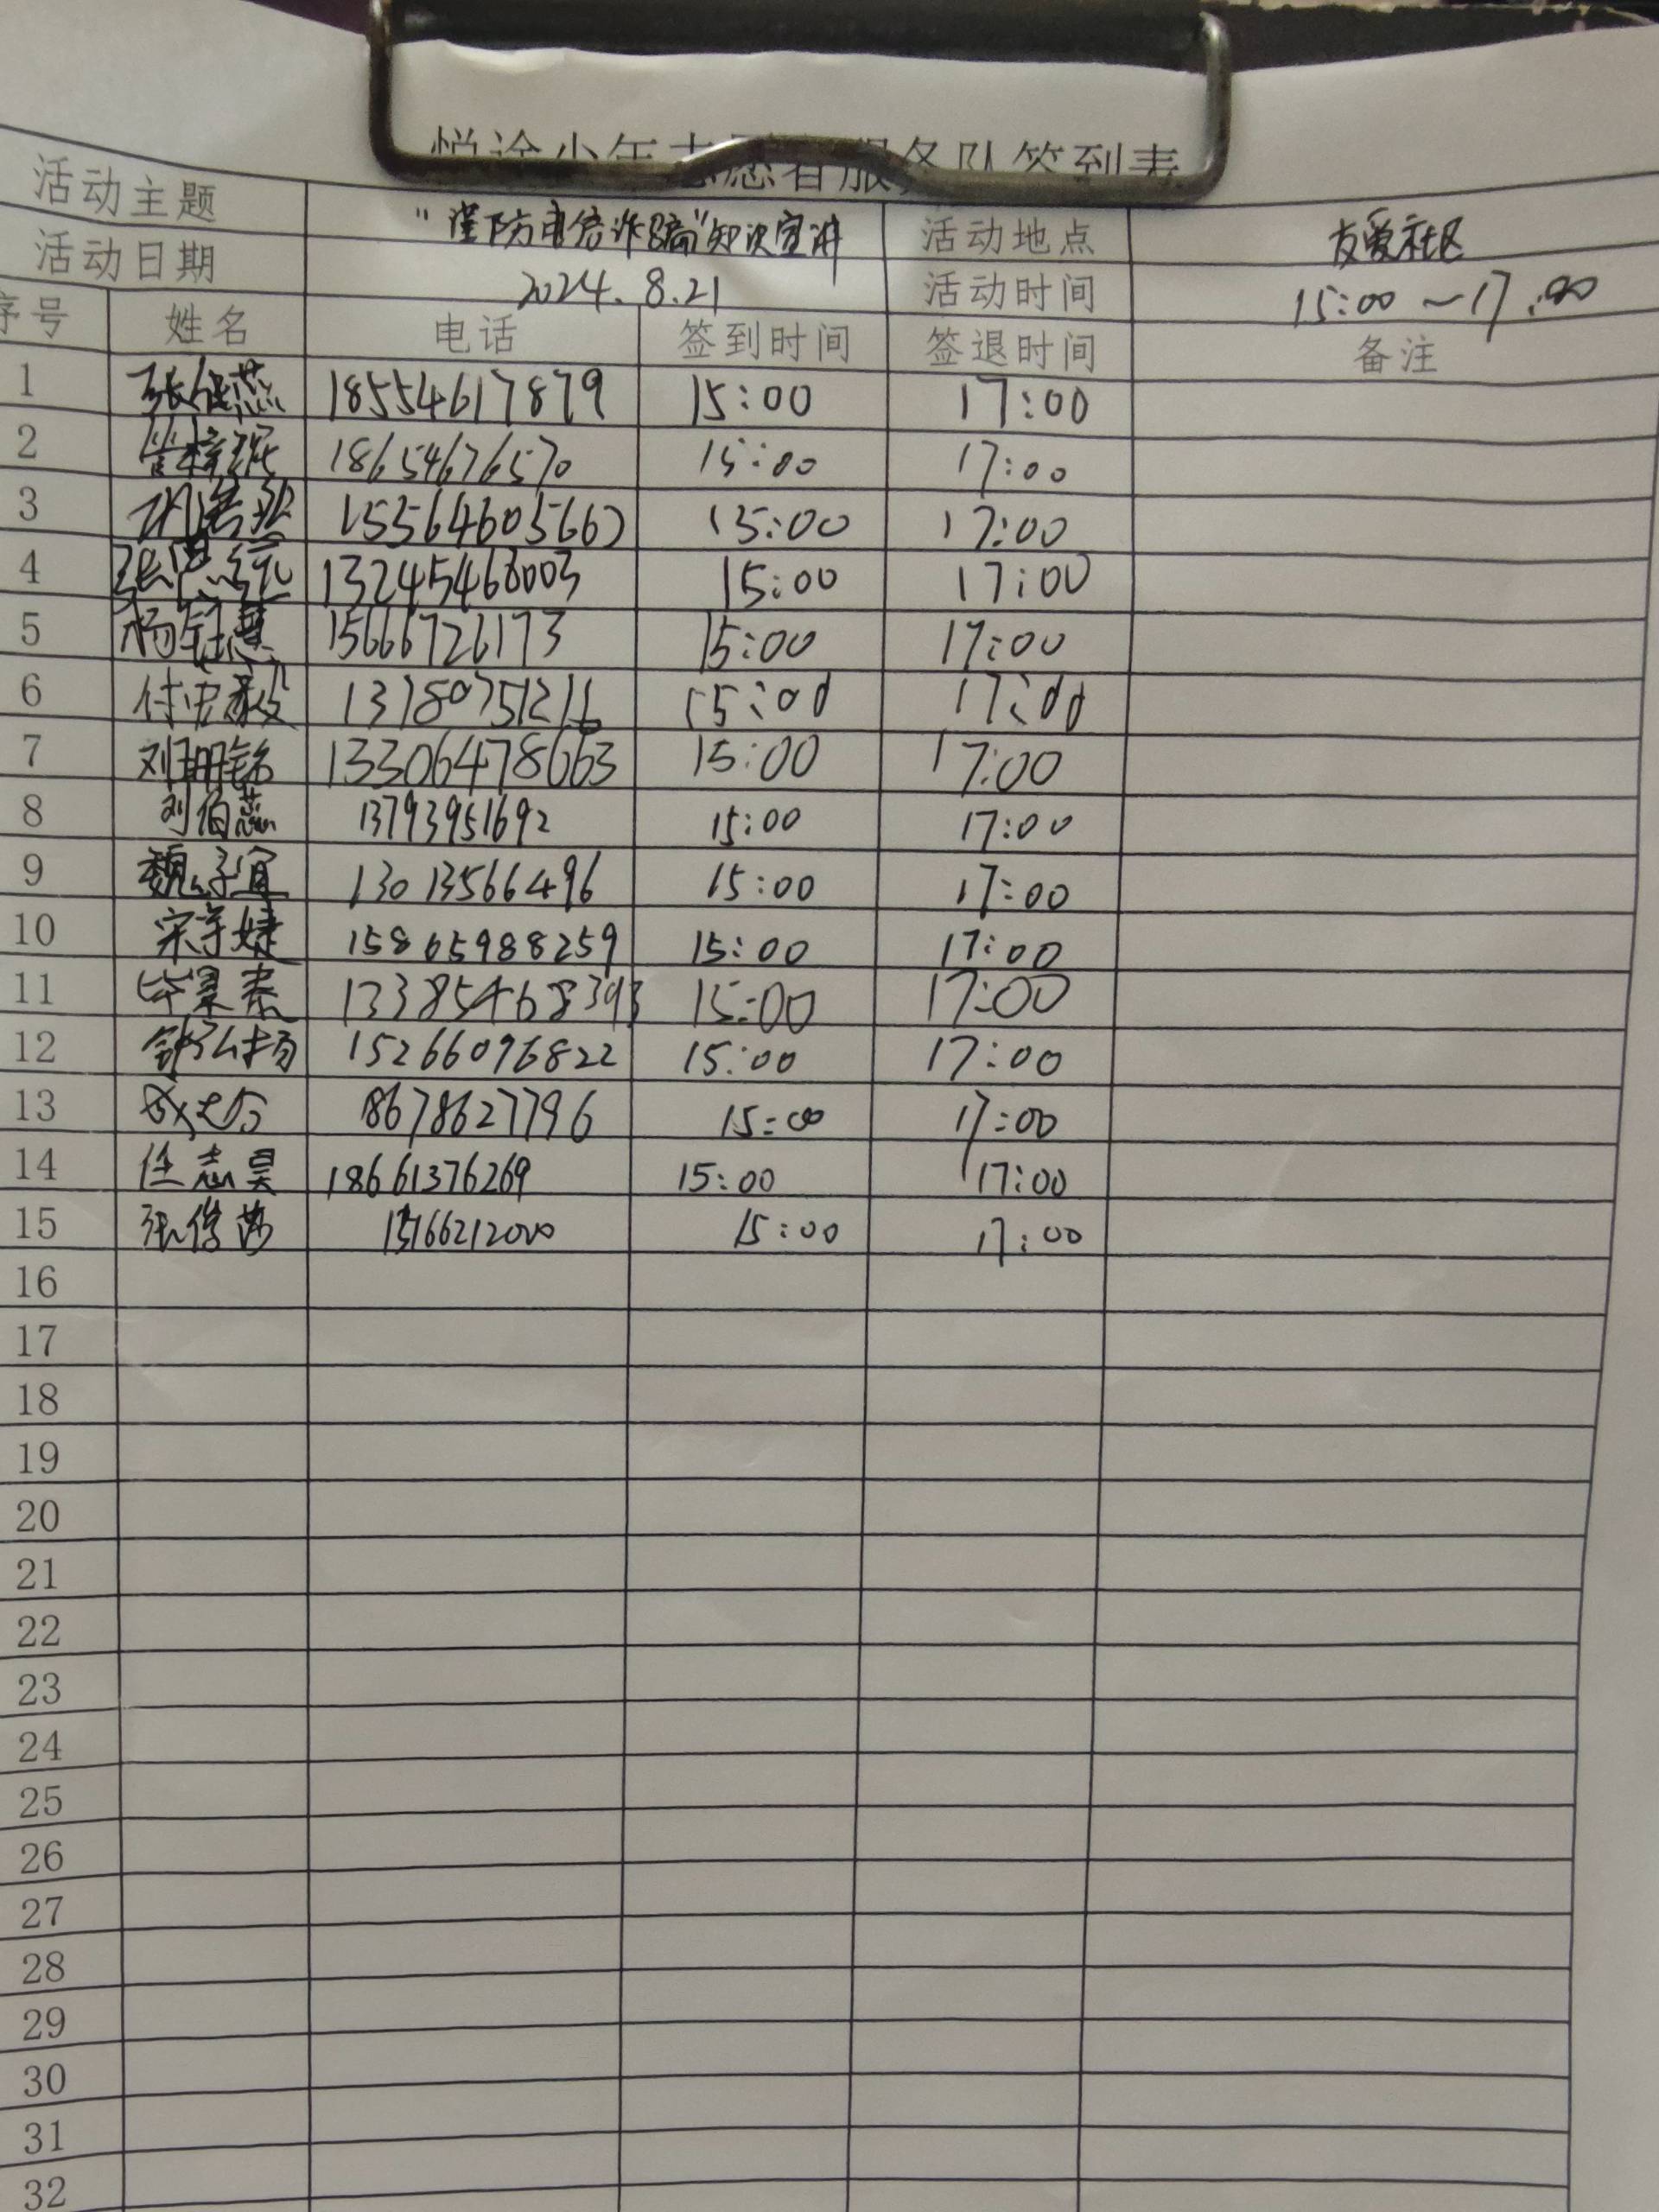 少年志愿者服务队签到表
活动主题 "谨防电信诈骗"知识宣讲 活动地点 友爱社区
活动日期 2024.8.21 活动时间 15:00~17:00
序号 姓名 电话 签到时间 签退时间 备注
1 18554617879 15:00 17:00
2 18654676570 15:00 17:00
3 15:00 17:00
4 13245468003 15:00 17:00
5 杨钰慧 15666726173 15:00 17:00
6 15:00 17:00
7 13306478663 15:00 17:00
8 刘伯蕊 13793951692 15:00 17:00
9 魏子宜 13013566496 15:00 17:00
10 宋子婕 15865988259 15:00 17:00
11 毕景泰 13385468393 15:00 17:00
12 15266096822 15:00 17:00
13 8678627796 15:00 17:00
14 任志昊 18661376269 15:00 17:00
15 15:00 17:00
16
17
18
19
20
21
22
23
24
25
26
27
28
29
30
31
32